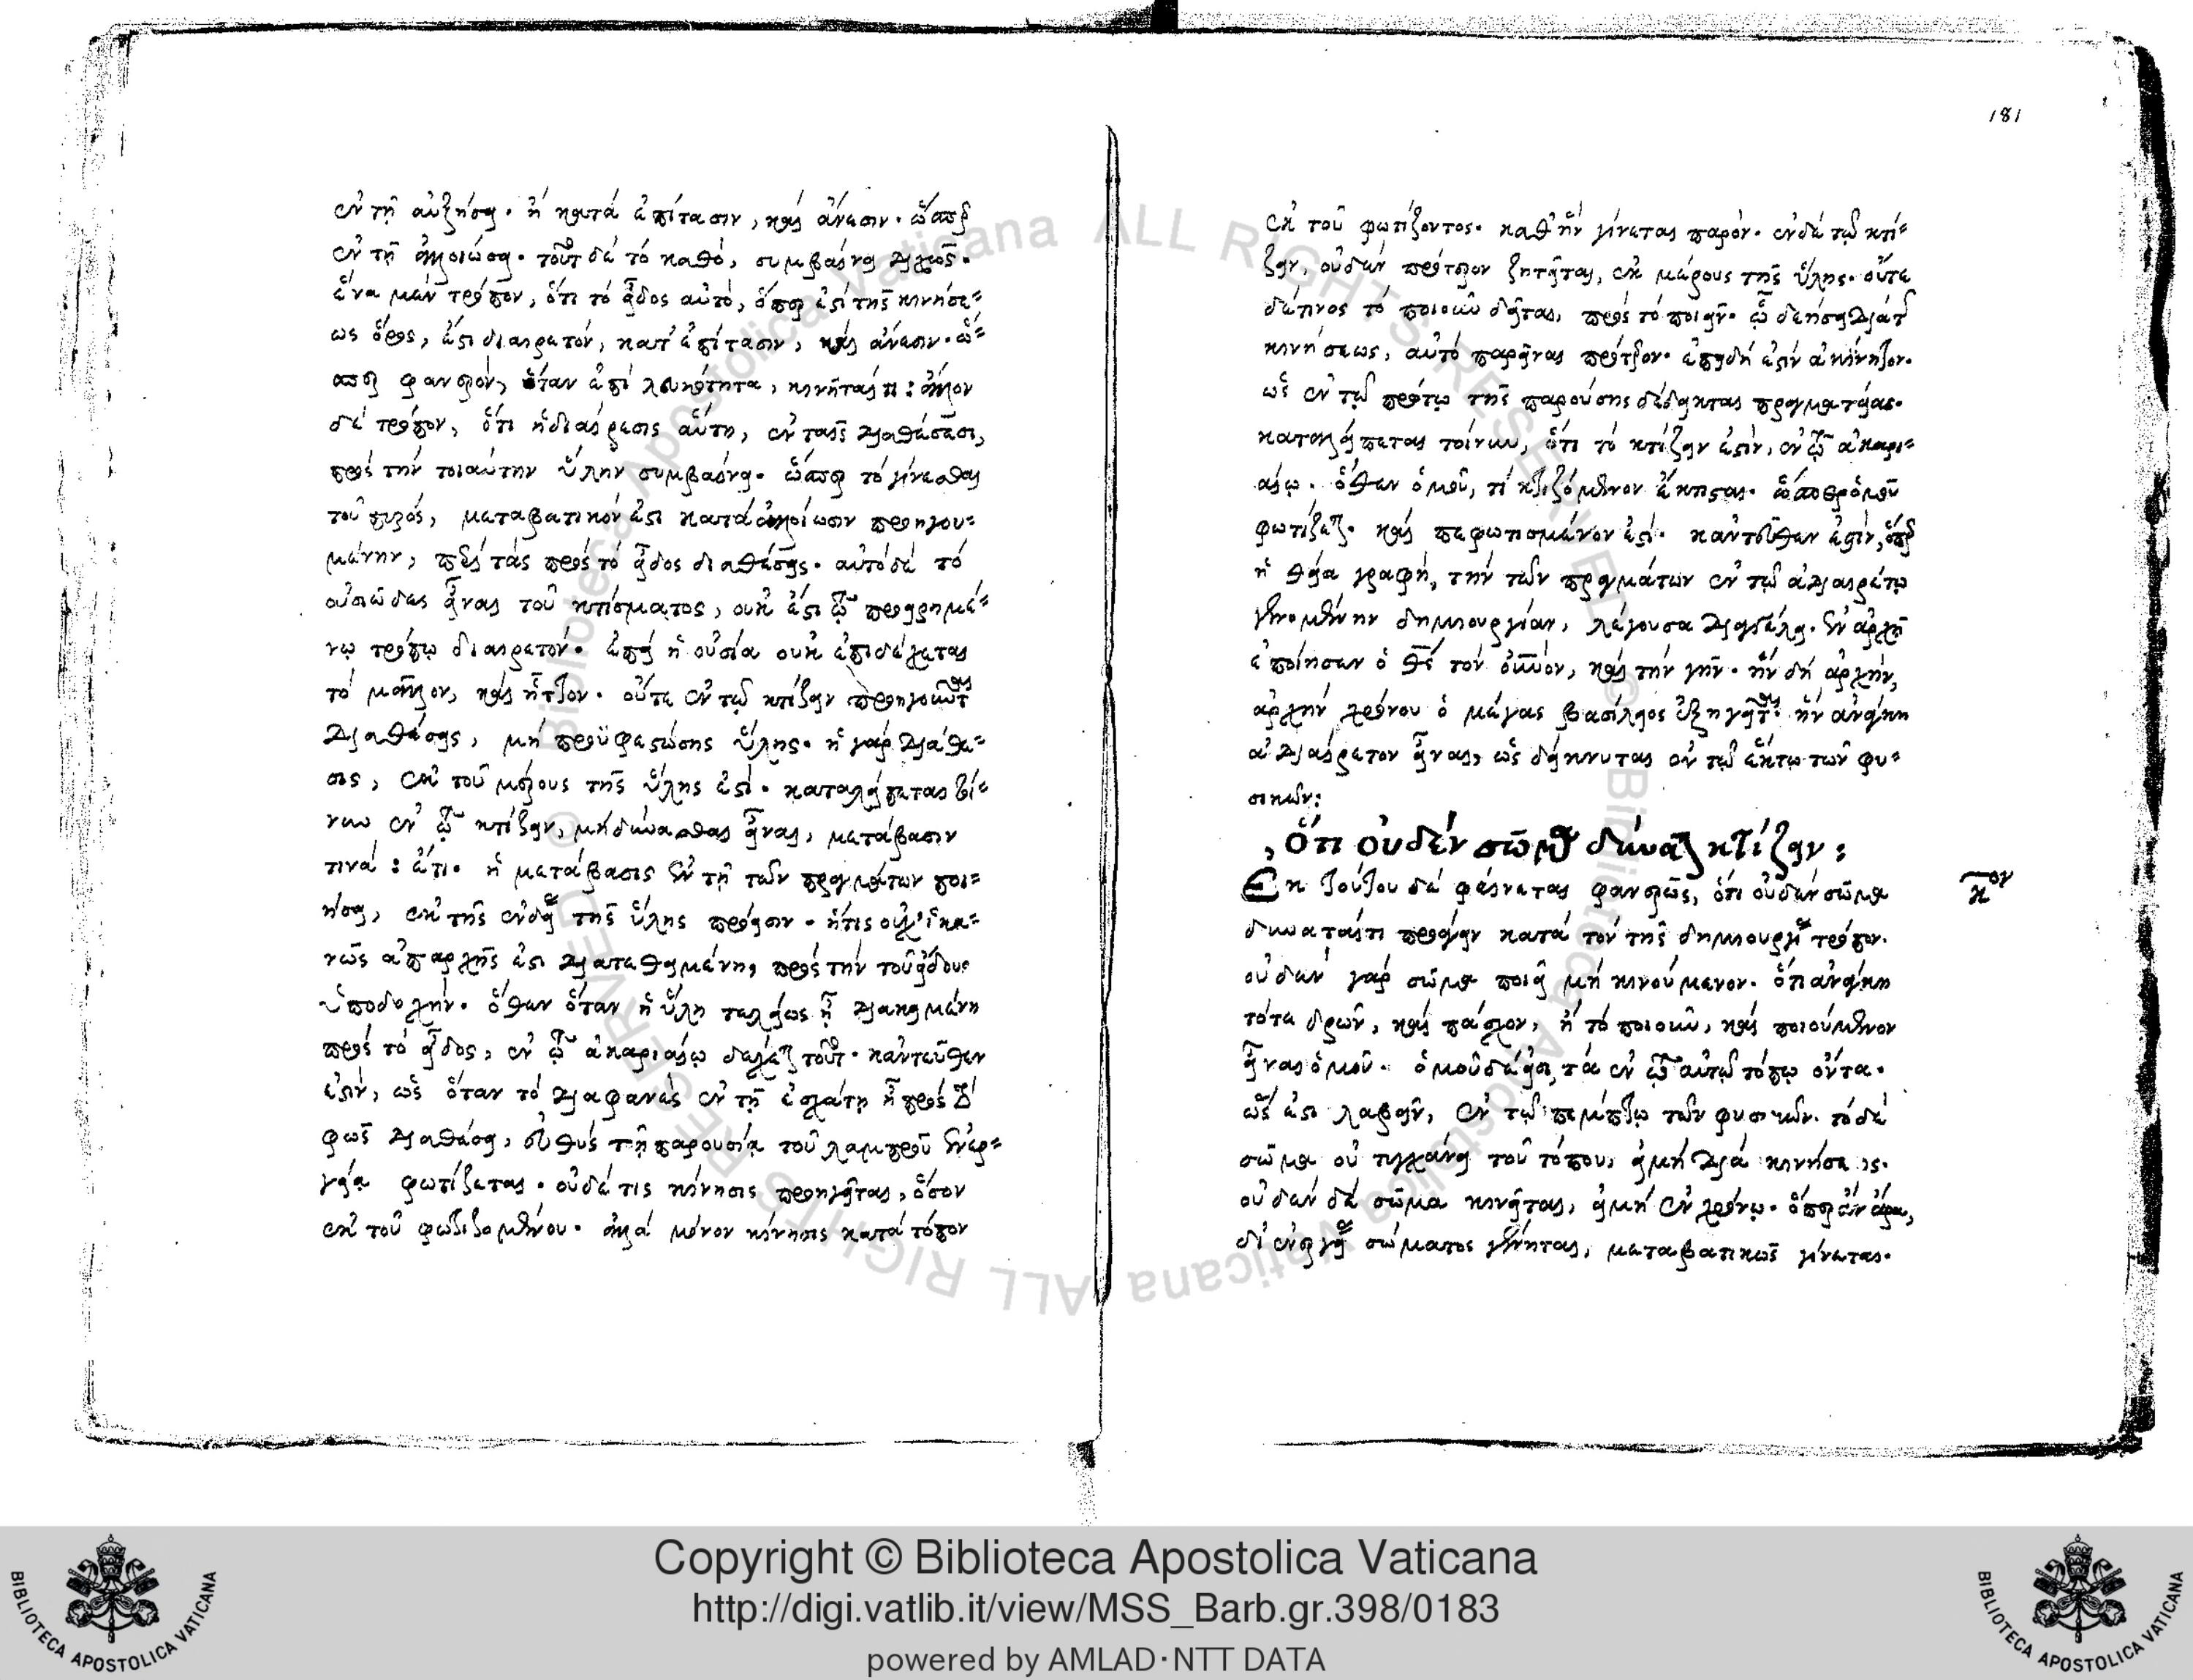 ἐν τῇ αὐξήσει. ἢ κατὰ ἐπίτασιν, καὶ ἄνεσιν. ὥσπερ
ἐν τῇ ἀλλοιώσει. τοῦτο δὲ τὸ καθὸ, συμβαίνει διχῶς.
ἕνα μὲν τρόπον, ὅτι τὸ εἶδος αὐτὸ, ὅπερ ἐστὶ τῆς κινήσε-
ως ὅρος, ἐστὶ διαιρετὸν, κατ' ἐπίτασιν, καὶ ἄνεσιν. ὥ-
σπερ φανερὸν, ὅταν ἐπὶ λευκότητα, κινῆται τι: ἄλλον
δὲ τρόπον, ὅτι ἡ διαίρεσις αὕτη, ἐν ταῖς διαθέσεσι,
πρὸς τὴν τοιαύτην ὕλην συμβαίνει. ὥσπερ τὸ γίνεσθαι
τοῦ πυρὸς, μεταβατικόν ἐστι κατὰ ἀλλοίωσιν προηγου-
μένην, περὶ τὰς πρὸς τὸ εἶδος διαθέσεις. αὐτὸ δὲ τὸ
οὐσιῶδες εἶναι τοῦ κτίσματος, οὐκ ἔστι τῷ προειρημέ-
νῳ τρόπῳ διαιρετόν. ἐπεὶ ἡ οὐσία οὐκ ἐπιδέχεται
τὸ μᾶλλον, καὶ ἧττον. οὔτε ἐν τῷ κτίζειν προηγοῦνται
διαθέσεις, μὴ προϋφεστώσης ὕλης. ἡ γὰρ διάθε-
σις, ἐκ τοῦ μέρους τῆς ὕλης ἐστί. καταλείπεται τοί-
νυν ἐν τῷ κτίζειν, μὴ δύνασθαι εἶναι, μετάβασίν
τινα: ἔτι. ἡ μετάβασις ἐν τῇ τῶν πραγμάτων ποι-
ήσει, ἐκ τῆς ἐνδείας τῆς ὕλης πρόεισιν. ἥτις οὐχ' ἱκα-
νῶς ἀπαρχῆς ἐστι διατεθειμένη, πρὸς τὴν τοῦ εἴδους
ὑποδοχήν. ὅθεν ὅταν ἡ ὕλη τελείως ᾖ διακειμένη
πρὸς τὸ εἶδος, ἐν τῷ ἀκαριαίῳ δέχεται τοῦτο. κἀντεῦθέν
ἐστιν, ὡς ὅταν τὸ διαφανὲς ἐν τῇ ἐσχάτῃ ᾖ πρὸς τὸ
φῶς διαθέσει, εὐθὺς τῇ παρουσίᾳ τοῦ λαμπροῦ ἐνερ-
γείᾳ φωτίζεται. οὐδέ τις κίνησις προηγεῖται, ὅσον
ἐκ τοῦ φωτιζομένου. ἀλλὰ μόνον κίνησις κατὰ τόπον
181
ἐκ τοῦ φωτίζοντος. καθ' ἣν γίνεται παρόν. ἐν δὲ τῷ κτί-
ζειν, οὐδὲν πρότερον ζητεῖται, ἐκ μέρους τῆς ὕλης. οὔτε
δέ τινος τὸ ποιοῦν δεῖται, πρὸς τὸ ποιεῖν. ᾧ δεήσει διά τε
κινήσεως, αὐτὸ παρεῖναι πρότερον. ἐπειδή ἐστιν ἀκίνητον.
ὡς ἐν τῷ πρώτῳ τῆς παρούσης δέδεικται πραγματείας.
καταλείπεται τοίνυν, ὅτι τὸ κτίζειν ἐστὶν, ἐν τῷ ἀκαρι-
αίῳ. ὅθεν ὁμοῦ, τὶ κτιζόμενον ἔκτισται. ὥσπερ ὁμοῦ
φωτίζεται. καὶ πεφωτισμένον ἐστί. κἀντεῦθέν ἐστιν, ὅπερ
ἡ θεία γραφὴ, τὴν τῶν πραγμάτων ἐν τῷ ἀδιαιρέτῳ
γενομένην δημιουργίαν, λέγουσα διαδέλει. ἐν ἀρχῇ
ἐποίησεν ὁ θς τὸν οὐνὸν, καὶ τὴν γῆν. ἣν δὴ ἀρχὴν,
ἀρχὴν χρόνου ὁ μέγας βασίλειος ἐξηγεῖται. ἣν ἀνάγκη
ἀδιαίρετον εἶναι, ὡς δείκνυται ἐν τῷ ἕκτῳ τῶν φυ-
σικῶν:
Ὅτι οὐδὲν σῶμα δύναται κτίζειν:
κον
Ἐκ τούτου δὲ φαίνεται φανερῶς, ὅτι οὐδὲν σῶμα
δύναταί τι προάγειν κατὰ τὸν τῆς δημιουργίας τρόπον.
οὐδὲν γὰρ σῶμα ποιεῖ μὴ κινούμενον. ὅτι ἀνάγκη
τότε δρῶν, καὶ πάσχον, ἢ τὸ ποιοῦν, καὶ ποιούμενον
εἶναι ὁμοῦ. ὁμοῦ δέ ἐστι, τὰ ἐν τῷ αὐτῷ τόπῳ ὄντα.
ὡς ἔστι λαβεῖν, ἐν τῷ πέμπτῳ τῶν φυσικῶν. τὸ δὲ
σῶμα οὐ τυγχάνει τοῦ τόπου, εἰ μὴ διὰ κινήσεως.
οὐδὲν δὲ σῶμα κινεῖται, εἰ μὴ ἐν χρόνῳ. ὅπερ ἂν ἄρα,
δι' ἐνεργείας σώματος γένηται, μεταβατικῶς γίνεται.
Copyright © Biblioteca Apostolica Vaticana
http://digi.vatlib.it/view/MSS_Barb.gr.398/0183
powered by AMLAD·NTT DATA
BIBLIOTECA APOSTOLICA VATICANA
BIBLIOTECA APOSTOLICA VATICANA